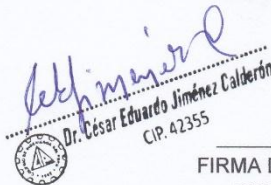 Dr. César Eduardo Jiménez Calderón
CIP. 42355
FIRMA